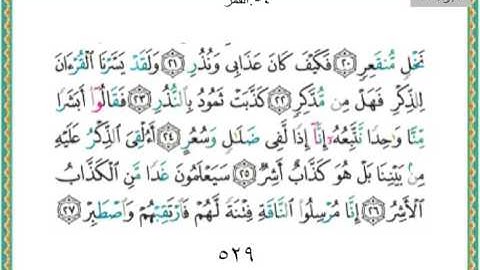 ٥٤.القمر
نَخْلٍ مُّنقَعِرٍ ﴿٢٠﴾ فَكَيْفَ كَانَ عَذَابِى وَنُذُرِ ﴿٢١﴾ وَلَقَدْ يَسَّرْنَا الْقُرْءَانَ
لِلذِّكْرِ فَهَلْ مِن مُّدَّكِرٍ ﴿٢٢﴾ كَذَّبَتْ ثَمُودُ بِالنُّذُرِ ﴿٢٣﴾ فَقَالُوٓا۟ أَبَشَرًا
مِّنَّا وَٰحِدًا نَّتَّبِعُهُۥٓ إِنَّآ إِذًا لَّفِى ضَلَٰلٍ وَسُعُرٍ ﴿٢٤﴾ أَءُلْقِىَ الذِّكْرُ عَلَيْهِ
مِنۢ بَيْنِنَا بَلْ هُوَ كَذَّابٌ أَشِرٌ ﴿٢٥﴾ سَيَعْلَمُونَ غَدًا مَّنِ الْكَذَّابُ
الْأَشِرُ ﴿٢٦﴾ إِنَّا مُرْسِلُوا۟ النَّاقَةِ فِتْنَةً لَّهُمْ فَارْتَقِبْهُمْ وَاصْطَبِرْ ﴿٢٧﴾
٥٢٩